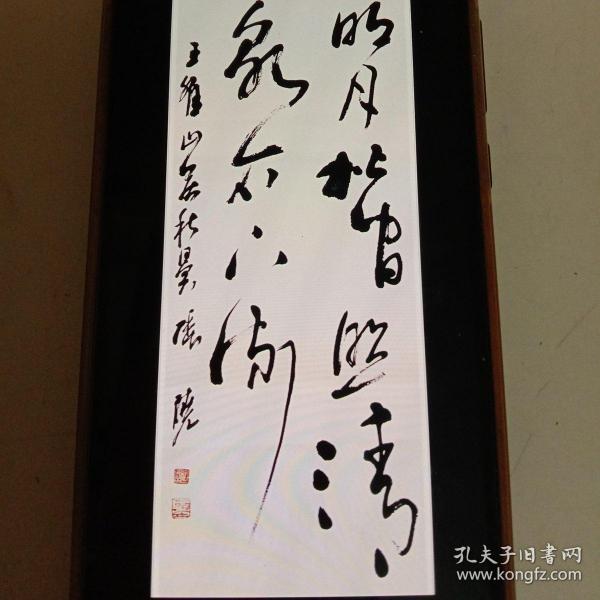 明月松間照清
泉石上流
王維山居秋暝
孔夫子旧書网
www.kongfz.com